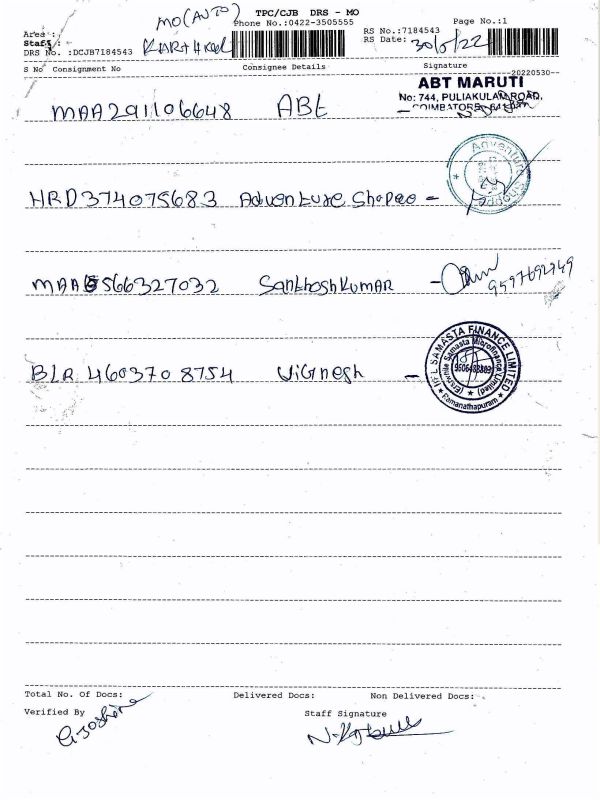 MO(AUTO) TPC/CJB DRS - MO
Phone No.:0422-3505555 Page No.:1
Area :
Staff : KARTHEEK RS No.:7184543
DRS No. :DCJB7184543 RS Date: 30/5/22
S No Consignment No Consignee Details Signature
--20220530--
ABT MARUTI
No: 744, PULIAKULAM ROAD,
COIMBATORE
MAA291106648 ABt
HRD374075683 Adventure Shopee -
Adventure Shoppe
MAA566327032 Santhoshkumar - 9597692749
BLR 4603708754 Vignesh -
IIFL SAMASTA FINANCE LIMITED
(Erstwhile Samasta Microfinance Limited)
Ramanathapuram
Total No. Of Docs: Delivered Docs: Non Delivered Docs:
Verified By Staff Signature
G.Joshine